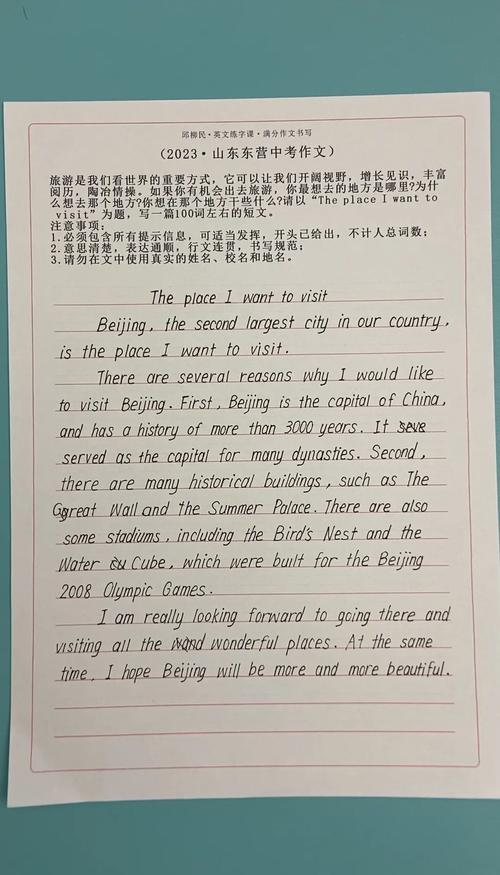 邱柳民·英文练字课·满分作文书写
（2023·山东东营中考作文）
旅游是我们看世界的重要方式，它可以让我们开阔视野，增长见识，丰富
阅历，陶冶情操。如果你有机会出去旅游，你最想去的地方是哪里?为什
么想去那个地方?你想在那个地方干些什么?请以“The place I want to
visit”为题，写一篇100词左右的短文。
注意事项：
1.必须包含所有提示信息，可适当发挥，开头已给出，不计人总词数；
2.意思清楚，表达通顺，行文连贯，书写规范；
3.请勿在文中使用真实的姓名、校名和地名。
The place I want to visit
Beijing, the second largest city in our country,
is the place I want to visit.
There are several reasons why I would like
to visit Beijing. First, Beijing is the capital of China,
and has a history of more than 3000 years. It
served as the capital for many dynasties. Second,
there are many historical buildings, such as The
Great Wall and the Summer Palace. There are also
some stadiums, including the Bird's Nest and the
Water Cube, which were built for the Beijing
2008 Olympic Games.
I am really looking forward to going there and
visiting all the wonderful places. At the same
time, I hope Beijing will be more and more beautiful.